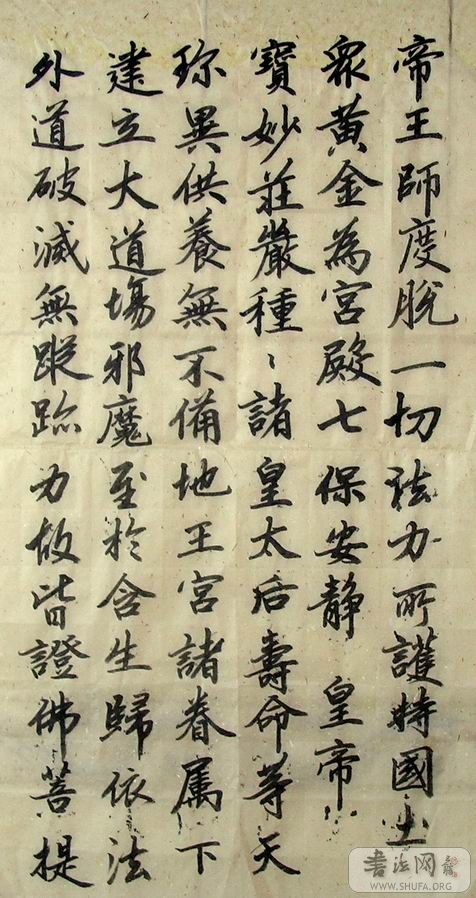 帝王師度脫一切法力所護持國土
眾黃金為宮殿七保安靜　皇帝
寶妙莊嚴種〻諸皇太后壽命等天
珎異供養無不備地王宮諸眷属下
建立大道場邪魔至於含生歸依法
外道破滅無蹤跡力故皆證佛菩提
書法网
WWW.SHUFA.ORG